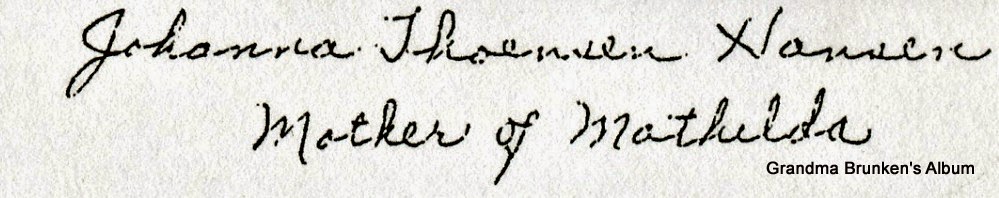 Johanna Thoensen Hansen
Mother of Mathilda
Grandma Brunken's Album